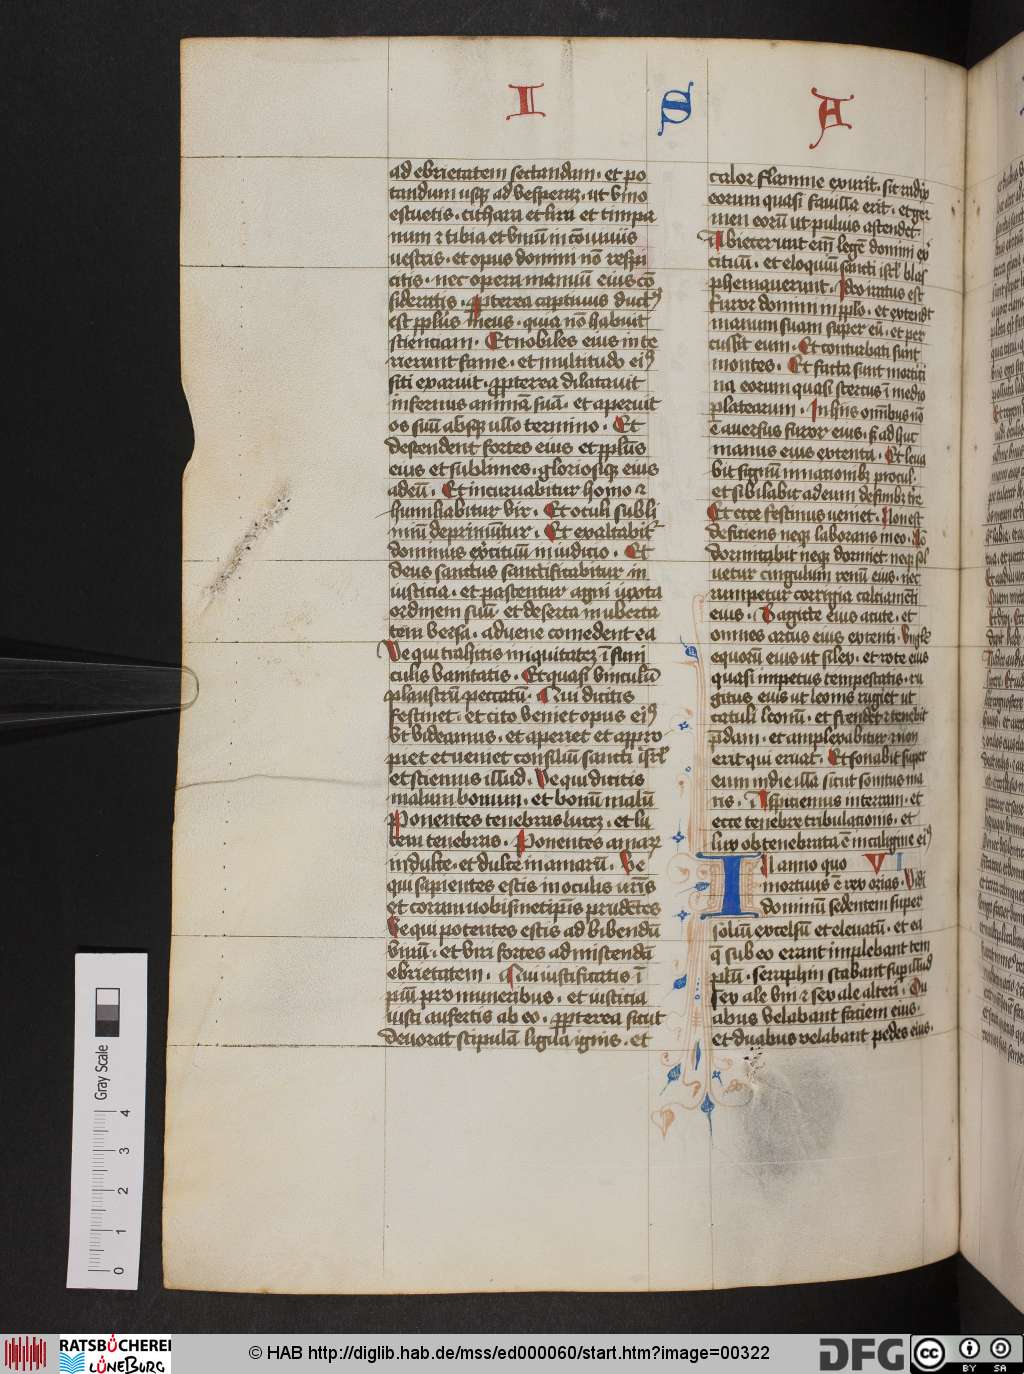 I S A
ad ebrietatem sectandam · et po
tandum usqz ad vesperaz · ut vino
estuetis · cithara et lira et timpa
num ⁊ tibia et vinū in cōviviis
vestris · et opus domini nō respi
citis · nec opera manuū eius cō
sideratis · propterea captivus duct9
est ppl̄us meus · quia nō habuit
scienciam · Et nobiles eius inte
rierunt fame · et multitudo ei9
siti exaruit · propterea dilatavit
infernus animā suā · et aperuit
os suū absqz ullo termino · Et
descendent fortes eius et ppl̄us
eius et sublimes · gloriosiqz eius
ad eū · Et incurvabitur homo ⁊
humiliabitur vir · Et oculi subli
miū deprimūtur · Et exaltabit
dominus exercituū in iudicio · Et
deus sanctus sanctificabitur in
iusticia · et pascentur agni iuxta
ordinem suū · et deserta in uberta
tem versa · advene comedent ea
Ve qui trahitis iniquitatez ī funi
culis vanitatis · Et quasi vinculū
plaustrū peccatū · Qui dicitis
festinet · et cito veniet opus ei9
Vt videamus · et aperiet et appro
piet et veniet consiliū sancti isrl̄
et sciemus illud · Ve qui dicitis
malum bonum · et bonū malū
Ponentes tenebras lucez · et lu
cem tenebras · Ponentes amar
in dulce · et dulce in amarū · Ve
qui sapientes estis in oculis vris
et coram vobismetipis prudētes
Ve qui potentes estis ad bibendū
vinū · et viri fortes ad miscendā
ebrietatem · Qui iustificatis ī
piū pro muneribus · et iusticiā
iusti aufertis ab eo · propterea sicut
devorat stipulā ligua ignis · et
calor flamme exurit · sic radix
eorum quasi favilla erit · et ger
men eorū ut pulvis ascendet
Abiecerunt em̄ legē domini ex
cituū · et eloquiū sancti isrl̄ blas
phemaverunt · Ideo iratus est
furor domini in pplo · et extendit
manum suam super eū · et per
cussit eum · Et conturbati sunt
montes · Et facta sunt mortici
na eorum quasi stercus ī medio
platearum · In hiis omībus nō
ē aversus furor eius · sed adhuc
manus eius extenta · Et leva
bit signū in nationibz procul ·
et sibilabit ad eum de finibz tre
Et ecce festinus veniet · Non est
deficiens neqz laborans in eo · Nō
dormitabit neqz dormiet neqz sol
vetur cingulum renū eius · nec
rumpetur corrigia calciamēti
eius · Sagitte eius acute · et
omnes arcus eius extenti · Ungule
equorū eius ut silex · et rote eius
quasi impetus tempestatis · ru
gitus eius ut leonis rugiet ut
catuli leonū · et frendet ⁊ tenebit
p̄dam · et amplexabitur ⁊ non
erit qui eruat · Et sonabit super
eum in die illa sicut sonitus ma
ris · Aspiciemus in terram · et
ecce tenebre tribulationis · et
lux obtenebrata ē in caligine ei9
In anno quo VI
mortuus ē rex ozias · Vidi
dominū sedentem super
soliū excelsū et elevatū · et ea
q̄ sub eo erant implebant tem
plū · seraphin stabant sup illud
Sex ale uni ⁊ sex ale alteri · Du
abus velabant faciem eius ·
et duabus velabant pedes eius ·
Gray Scale
0 1 2 3 4
RATSBÜCHEREI
LÜNEBURG
© HAB http://diglib.hab.de/mss/ed000060/start.htm?image=00322
DFG
cc BY SA